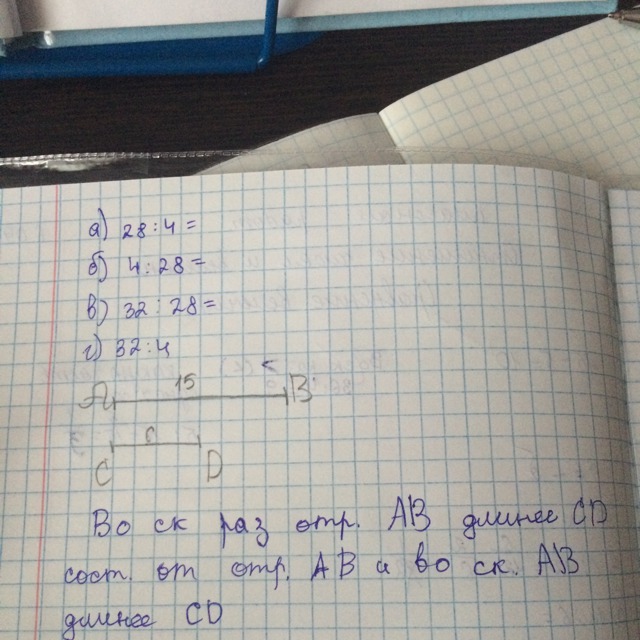 а) 28:4=
б) 4:28=
в) 32:28=
г) 32:4
A 15 B
C D
Во ск раз отр. AB длинее CD
сост. от отр. AB и во ск. AB
длинее CD